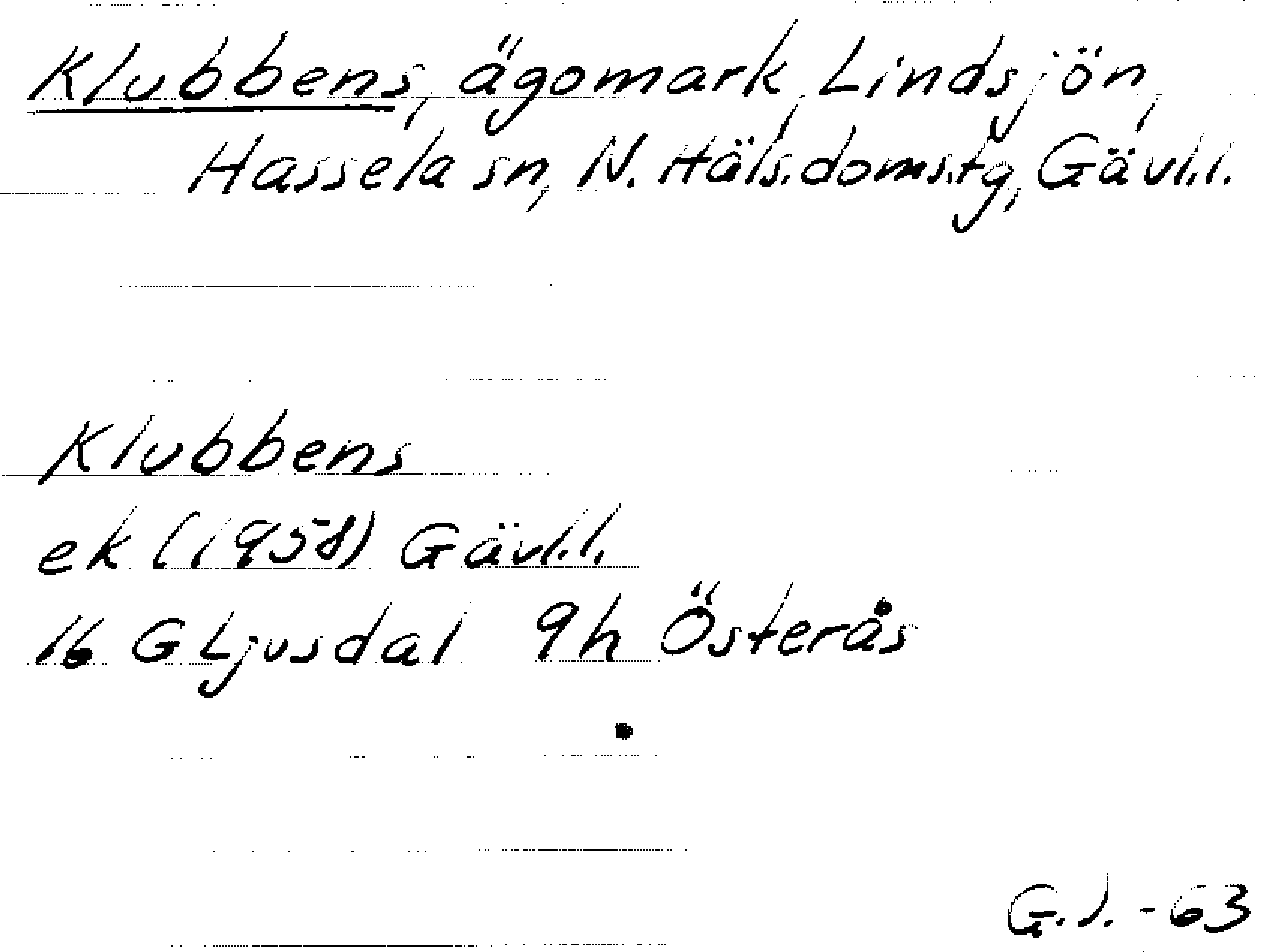 Klubbens, ägomark, Lindsjön,
Hassela sn, N. Häls. domstg, Gävl.l.
Klubbens
ek (1958) Gävl.l.
16 G Ljusdal 9h Österås
G.J. -63